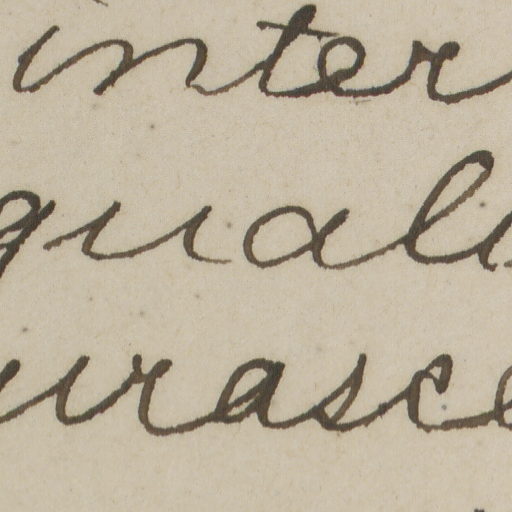 inter
quali
urasce